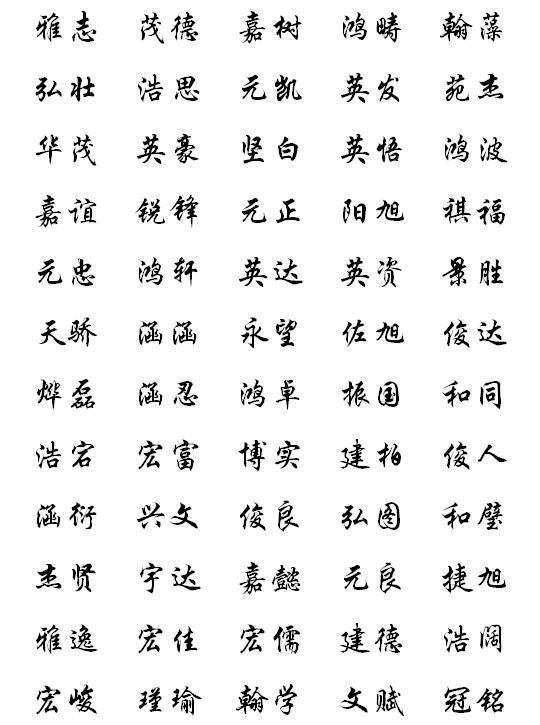 雅志 茂德 嘉树 鸿畴 翰藻
弘壮 浩思 元凯 英发 苑杰
华茂 英豪 坚白 英悟 鸿波
嘉谊 锐锋 元正 阳旭 祺福
元忠 鸿轩 英达 英资 景胜
天骄 涵涵 永望 佐旭 俊达
烨磊 涵忍 鸿卓 振国 和同
浩宕 宏富 博实 建柏 俊人
涵衍 兴文 俊良 弘图 和璧
杰贤 宇达 嘉懿 元良 捷旭
雅逸 宏佳 宏儒 建德 浩阔
宏峻 瑾瑜 翰学 文赋 冠铭